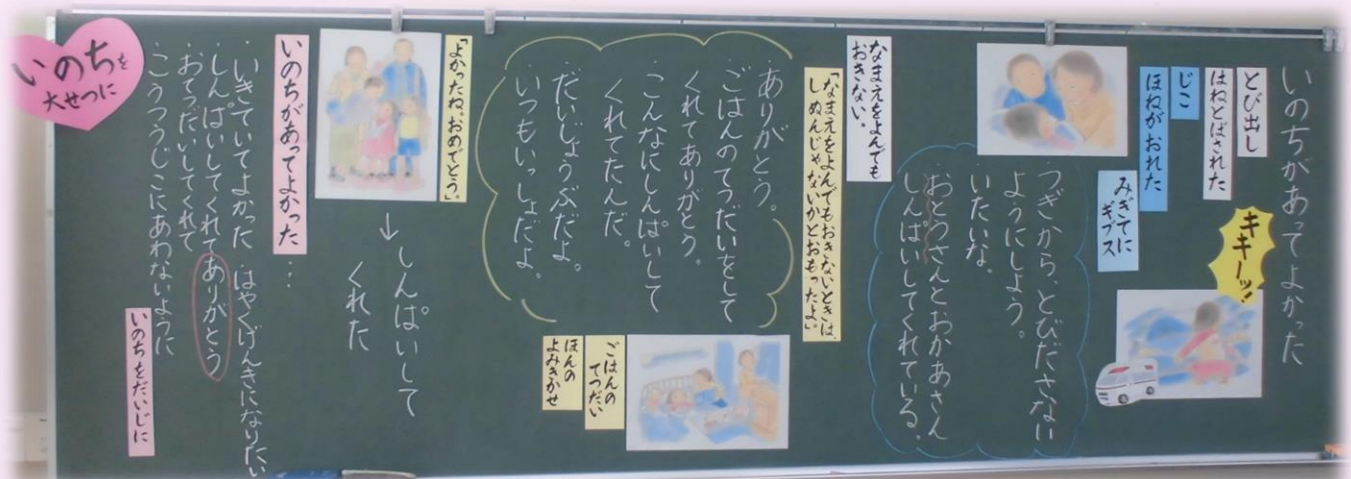 いのちがあってよかった
とび出し
はねとばされた
じこ
ほねがおれた
キキーッ!
みぎてに
ギプス
・つぎから、とびださない
ようにしよう。
・いたいな。
・おとうさんとおかあさん
しんぱいしてくれている。
なまえをよんでも
おきない。
「なまえをよんでもおきないときは、
しぬんじゃないかとおもったよ。」
・ありがとう。
・ごはんのてつだいをして
くれてありがとう。
・こんなにしんぱいして
くれてたんだ。
・だいじょうぶだよ。
・いつもいっしょだよ。
ごはんの
てつだい
ほんの
よみきかせ
「よかったね。おめでとう」。
↓
しんぱいして
くれた
いのちがあってよかった…
・いきていてよかった ・はやくげんきになりたい
・しんぱいしてくれてありがとう
・おてつだいしてくれて
・こうつうじこにあわないように
いのちをだいじに
いのちを
大せつに